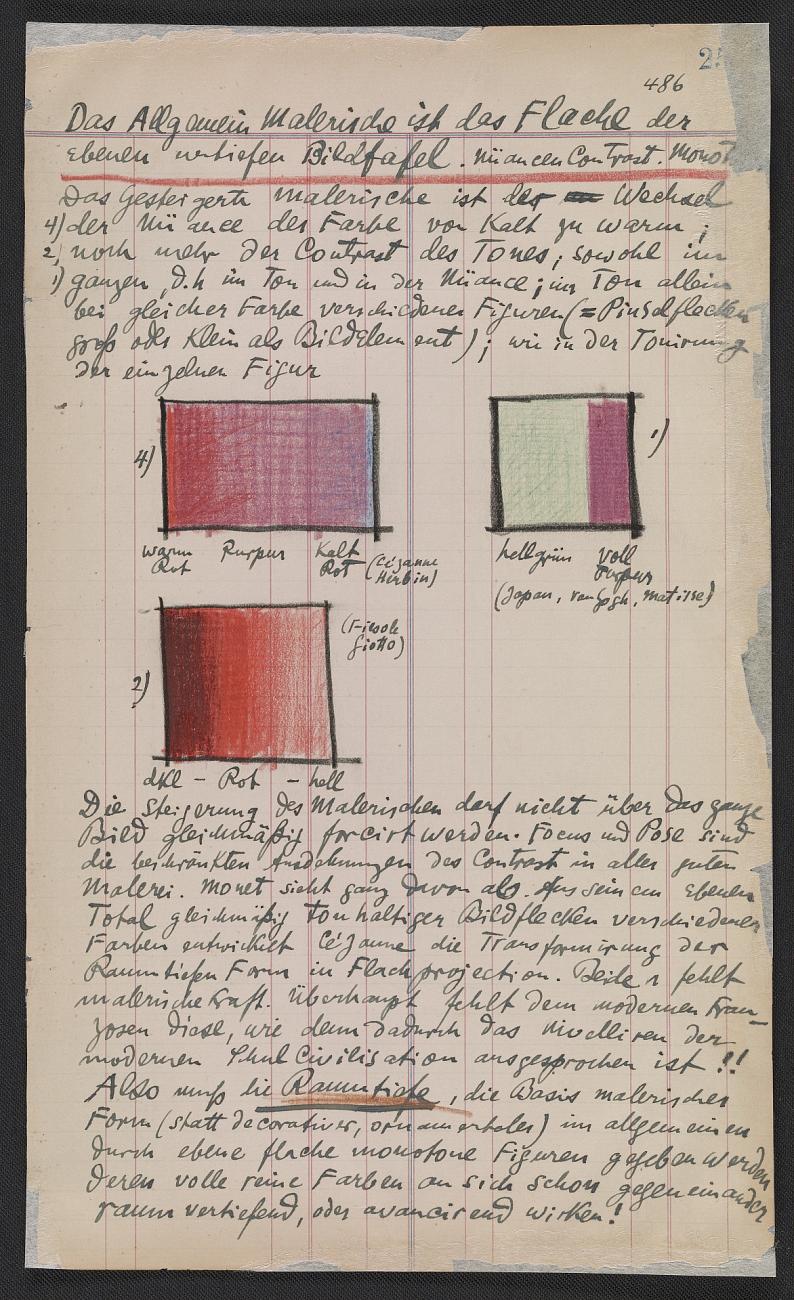 2
486
Das Allgemein Malerische ist das Flache der
ebenen vertiefen Bildtafel. Nüancen Contrast. Monot
Das Gesteigerte malerische ist der Wechsel
4) der Nüance der Farbe von Kalt zu warm;
2) noch mehr der Contrast des Tones, sowohl im
1) ganzen, d.h im Ton und in der Nüance; im Ton allein
bei gleicher Farbe verschiedener Figuren (= Pinselflecken
groß oder Klein als Bildelement); wie in der Tonirung
der einzelnen Figur
4)
1)
warm Purpur Kalt
Rot Rot (Cézanne
Herbin)
hellgrün voll
Purpur
(Japan, van Gogh, Matisse)
(Fiesole
Giotto)
2)
dkl - Rot - hell
Die Steigerung des Malerischen darf nicht über das ganze
Bild gleichmäßig forcirt werden. Focus und Pose sind
die beschränkten Ausdehnungen des Contrast in aller guten
Malerei. Monet sieht ganz davon ab. Aus seinem ebenen
Total gleichmäßig tonhaltiger Bildflecken verschiedener
Farben entwickelt Cézanne die Transformirung der
Raumtiefen Form in Flachprojection. Beiden fehlt
malerische Kraft. Überhaupt fehlt dem modernen Fran-
zosen diese, wie denn dadurch das Nivelliren der
modernen Schul Civilisation ausgesprochen ist !!
Also muß die Raumtiefe, die Basis malerischer
Form (statt decorativer, ornamentaler) im allgemeinen
durch ebene flache monotone Figuren gegeben werden
deren volle reine Farben an sich schon gegeneinander
raum vertiefend, oder avancirend wirken!